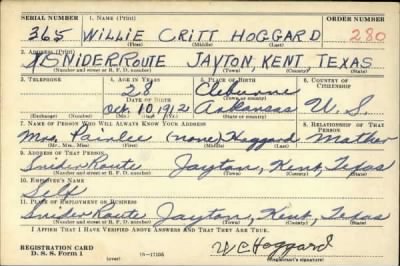 SERIAL NUMBER 1. NAME (Print) ORDER NUMBER
365 WILLIE CRITT HOGGARD 280
(First) (Middle) (Last)
2. ADDRESS (Print)
SNIDER ROUTE JAYTON, KENT TEXAS
(Number and street or R. F. D. number) (Town) (County) (State)
3. TELEPHONE 4. AGE IN YEARS 5. PLACE OF BIRTH 6. COUNTRY OF CITIZENSHIP
28 Cleburne
DATE OF BIRTH (Town or county)
Oct 10, 1912 Arkansas U.S.
(Exchange) (Number) (Mo.) (Day) (Yr.) (State or country)
7. NAME OF PERSON WHO WILL ALWAYS KNOW YOUR ADDRESS 8. RELATIONSHIP OF THAT PERSON
Mrs. (none) Hoggard Mother
(Mr., Mrs., Miss) (First) (Middle) (Last)
9. ADDRESS OF THAT PERSON
Snider Route Jayton, Kent, Texas
(Number and street or R. F. D. number) (Town) (County) (State)
10. EMPLOYER'S NAME
Self
11. PLACE OF EMPLOYMENT OR BUSINESS
Snider Route, Jayton, Kent, Texas
(Number and street or R. F. D. number) (Town) (County) (State)
I AFFIRM THAT I HAVE VERIFIED ABOVE ANSWERS AND THAT THEY ARE TRUE.
REGISTRATION CARD W C Hoggard
D. S. S. Form 1 (over) (Registrant's signature)